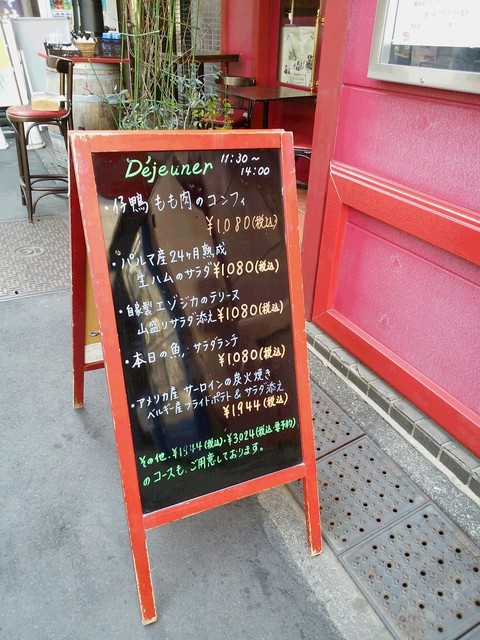 Déjeuner 11:30～
14:00
・仔鴨もも肉のコンフィ
¥1080(税込)
・パルマ産24ヶ月熟成
生ハムのサラダ ¥1080(税込)
・自家製エゾジカのテリーヌ
山盛りサラダ添え ¥1080(税込)
・本日の魚、サラダランチ
¥1080(税込)
・アメリカ産 サーロインの炭火焼き
ベルギー産フライドポテト&サラダ添え
¥1944(税込)
その他、¥1944(税込)・¥3,024(税込・要予約)
のコースも、ご用意しております。